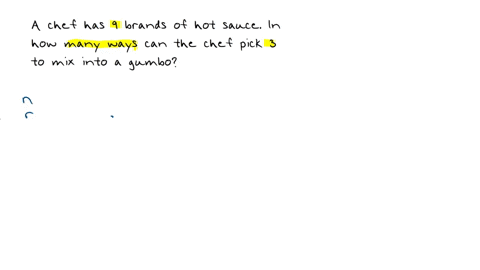 A chef has 9 brands of hot sauce. In
how many ways can the chef pick 3
to mix into a gumbo?
n
r